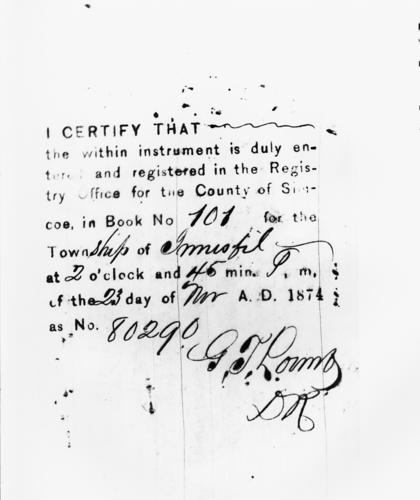 I CERTIFY THAT
the within instrument is duly en-
tered and registered in the Regis-
try Office for the County of Sim-
coe, in Book No 101 for the
Township of Innisfil
at 2 o'clock and 45 min. P. m,
of the 23 day of Nov A. D. 1874
as No. 80290
G. T. Lount
D R